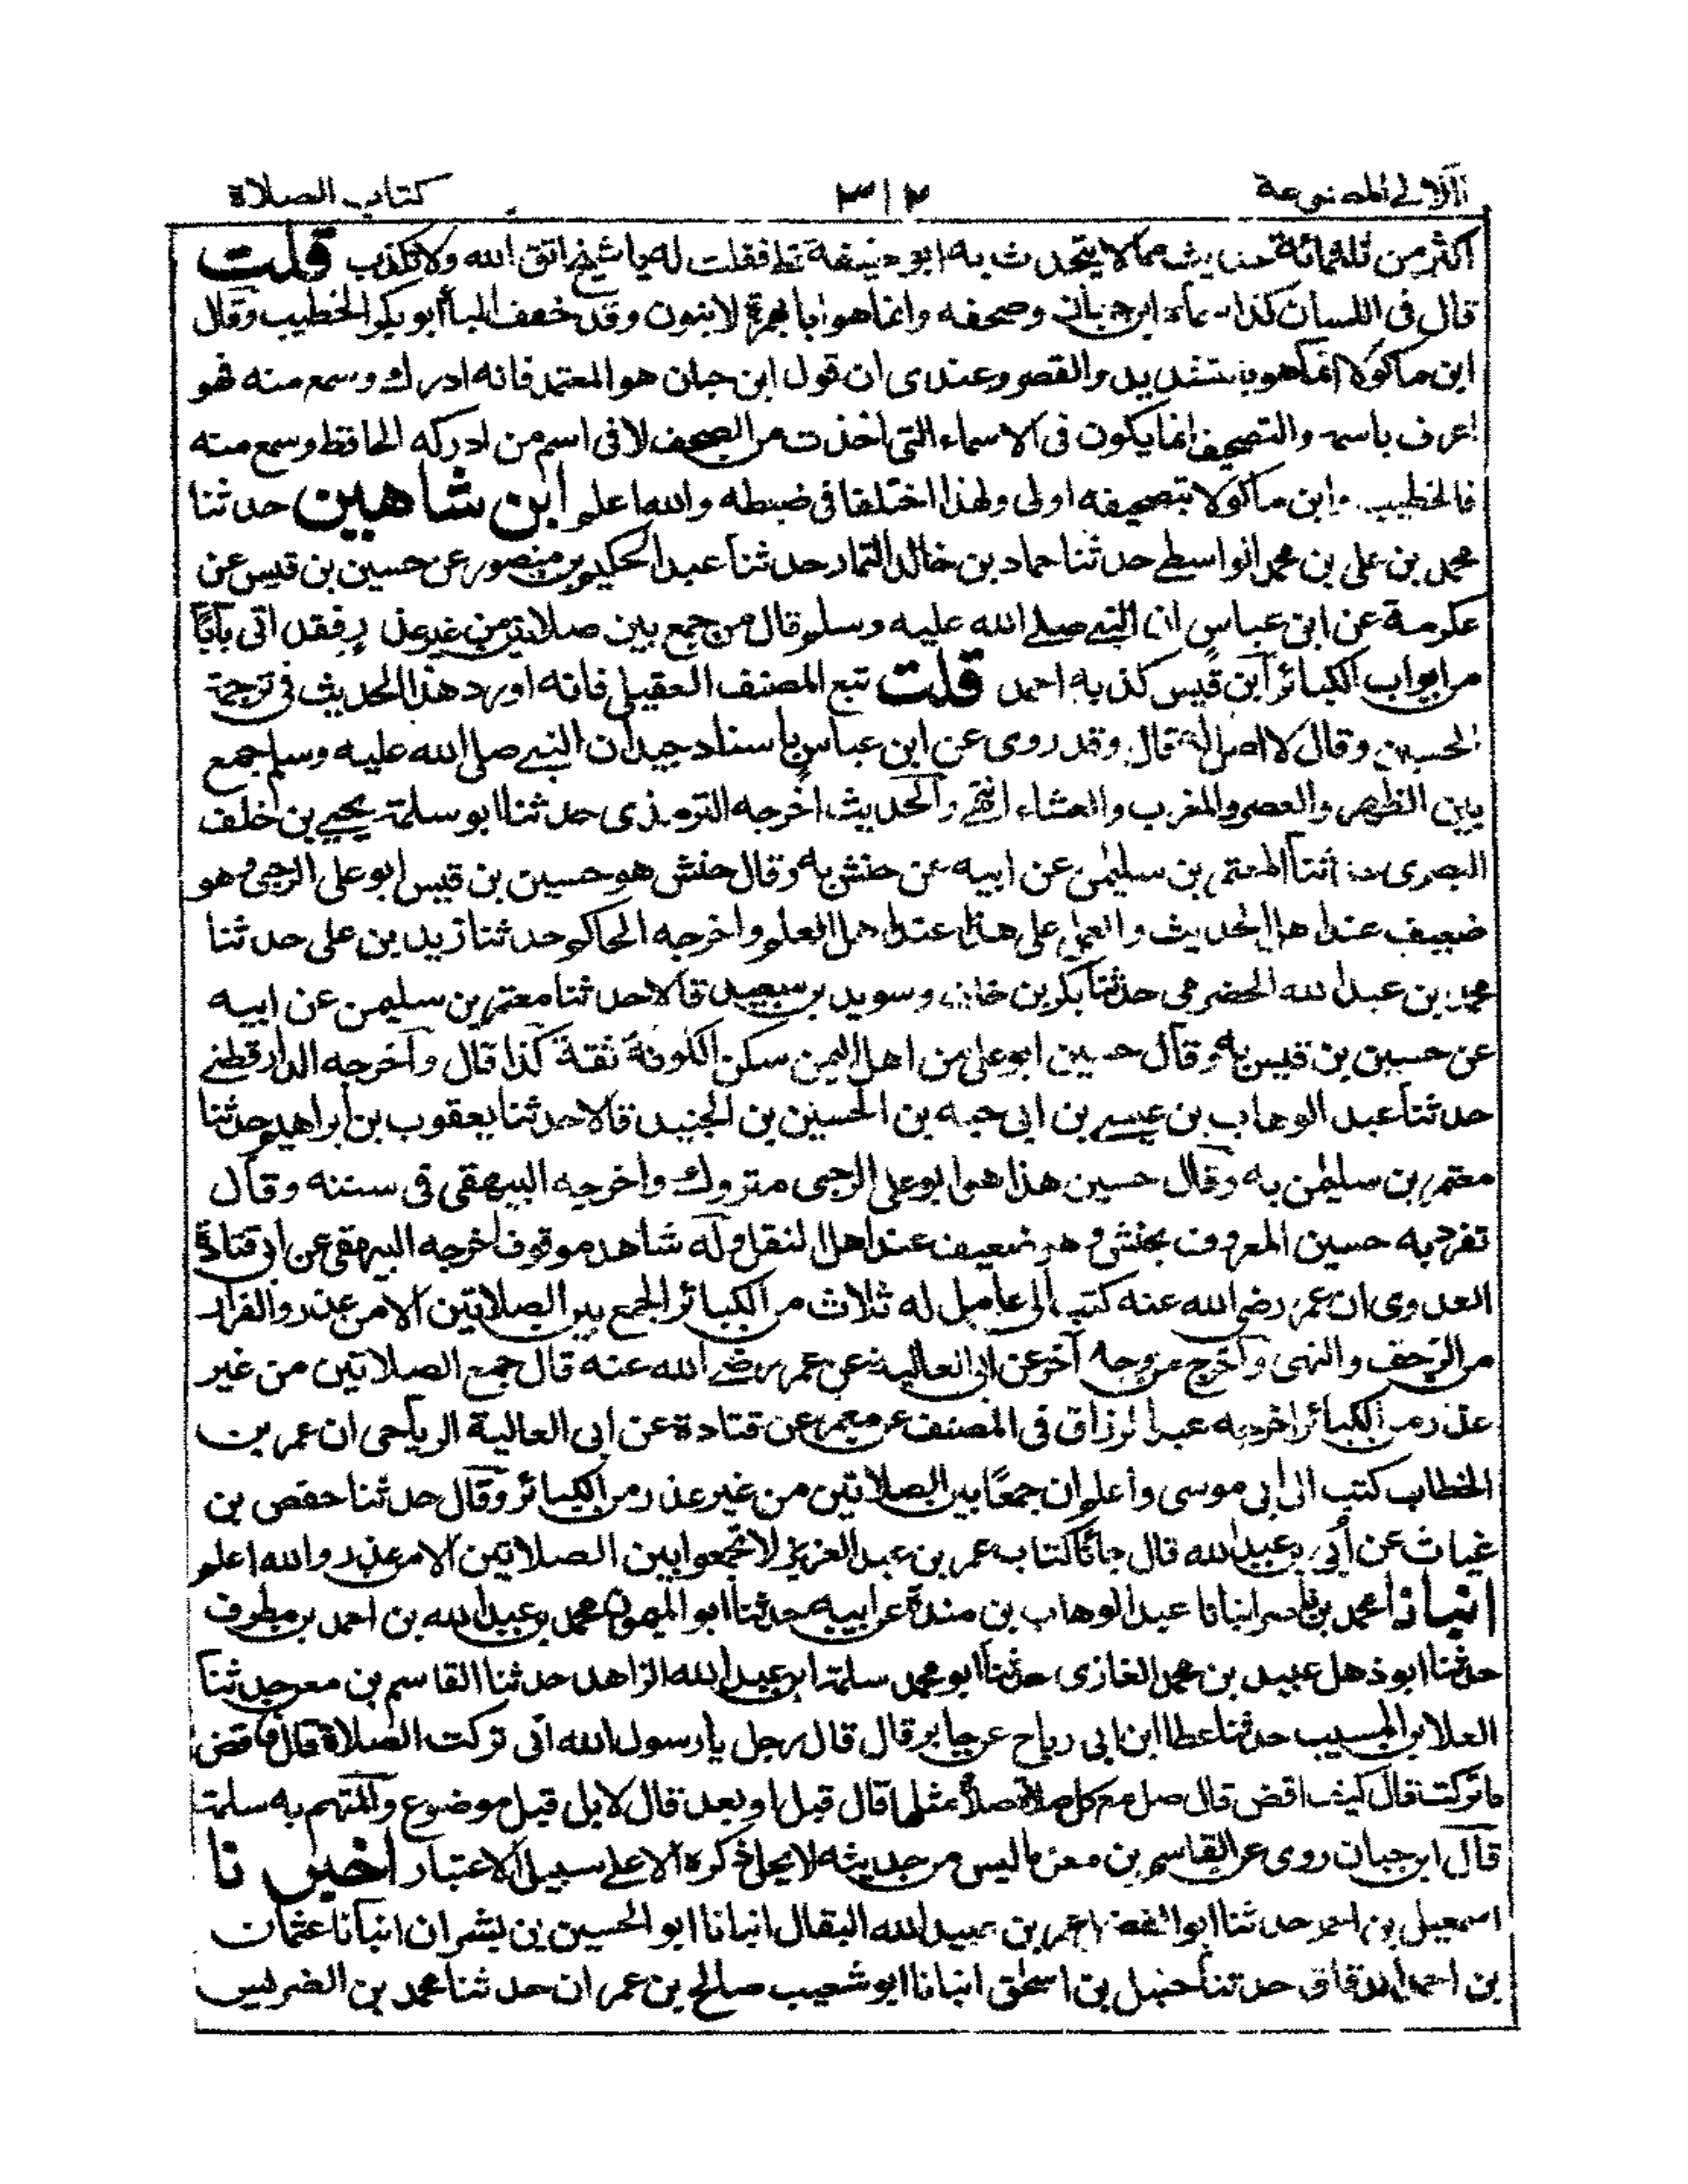 اللآلی المصنوعة ٣١٢ کتاب الصلاة
اکثر من ثلثمائة حدیث مما لا یتحدث به ابو حنیفة قط فقلت له یا شیخ اتق الله ولا تکذب قلت
قال فی اللسان کذا ابن حبان وصحفه وانما هو ابا لا بنون وقد خفف البا ابو بکر الخطیب وقال
ابن ماکولا انما هو بتشدید والقصر وعندی ان قول ابن حبان هو المعتمد فانه ادرك وسمع منه فهو
اعرف باسمه والتصحیف انما یکون فی الاسماء التی اخذت من الصحف لا فی اسم من ادرکه الحافظ وسمع منه
فالخطیب وابن ماکولا بتصحیفه اولی ولهذا اختلفا فی ضبطه والله اعلم ابن شاهین حدثنا
محمد بن علی بن محمد الواسطے حدثنا حماد بن خالد التمار حدثنا عبد الحکیم بن منصور عن حسین بن قیس عن
عکرمة عن ابن عباس ان النبے صلے الله علیه وسلم قال من جمع بین صلاتین من غیر عذر فقد اتی بابًا
من ابواب الکبائر ابن قیس کذبه احمد قلت تبع المصنف العقیلی فانه اورد هذا الحدیث فی ترجمة
الحسین وقال لا اصل له قال وقد روی عن ابن عباس باسناد جید ان النبے صلی الله علیه وسلم جمع
بین الظهر والعصر والمغرب والعشاء انتهے والحدیث اخرجه الترمذی حدثنا ابو سلمة یحیے بن خلف
البصری حدثنا المعتمر بن سلیمٰن عن ابیه عن حنش به وقال حنش هو حسین بن قیس ابو علی الرحبی وهو
ضعیف عند اهل الحدیث والعمل علی هذا عند اهل العلم واخرجه الحاکم حدثنا زید بن علی حدثنا
محمد بن عبد الله الحضرمی حدثنا بکر بن خلف وسوید بن سعید قالا حدثنا معتمر بن سلیمن عن ابیه
عن حسین بن قیس به وقال حسین ابو علی من اهل الیمن سکن الکوفة ثقة کذا قال واخرجه الدارقطنے
حدثنا عبد الوهاب بن عیسے بن ابی حیه بن الحسین بن الجنید قالا حدثنا یعقوب بن ابراهیم حدثنا
معتمر بن سلیمٰن به وقال حسین هذا هو ابو علی الرحبی متروك واخرجه البیهقی فی سننه وقال
تفرد به حسین المعروف بحنش وهو ضعیف عند اهل النقل وله شاهد موقوف اخرجه البیهقی عن ابی قتادة
العدوی ان عمر رضی الله عنه کتب الی عامل له ثلاث من الکبائر الجمع بین الصلاتین الا من عذر والفرار
من الزحف والنهی واخرج من وجه آخر عن ابی العالیة عن عمر رضے الله عنه قال جمع الصلاتین من غیر
عذر من الکبائر اخرجه عبد الرزاق فی المصنف عن معمر عن قتادة عن ابی العالیة الریاحی ان عمر بن
الخطاب کتب الی ابی موسی واعلم ان جمعًا بین الصلاتین من غیر عذر من الکبائر وقال حدثنا حفص بن
غیاث عن ابی بن عبد الله قال جائنا کتاب عمر بن عبد العزیز لا تجمعوا بین الصلاتین الا من عذر والله اعلم
انبانا محمد بن ناصر انبانا عبد الوهاب بن مندة عن ابیه حدثنا ابو المیمون محمد بن عبد الله بن احمد بن مطرف
حدثنا ابو ذهل عبید بن محمد الغازی حدثنا ابو محمد سلمة ابن عبد الله الزاهد حدثنا القاسم بن معن حدثنا
العلا بن المسیب حدثنا عطا ابن ابی رباح عن جابر قال قال رجل یا رسول الله انی ترکت الصلاة قال فاقض
ما ترکت قال کیف اقض قال صل مع کل صلاة صلاة مثلها قال قبل او بعد قال لا بل قبل موضوع والمتهم به سلمة
قال ابن حبان روی عن القاسم بن معن ما لیس من حدیثه لا یحل ذکره الا علے سبیل الاعتبار اخبرنا
اسمعیل بن احمد حدثنا ابو الفضل عمر بن عبید الله البقال انبانا ابو الحسین بن بشران انبانا عثمان
بن احمد الدقاق حدثنا حنبل بن اسحٰق انبانا ابو شعیب صالح بن عمران حدثنا محمد بن الضریس